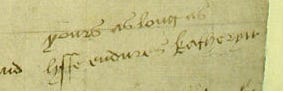 yours as long as
and lyffe endures katheryn